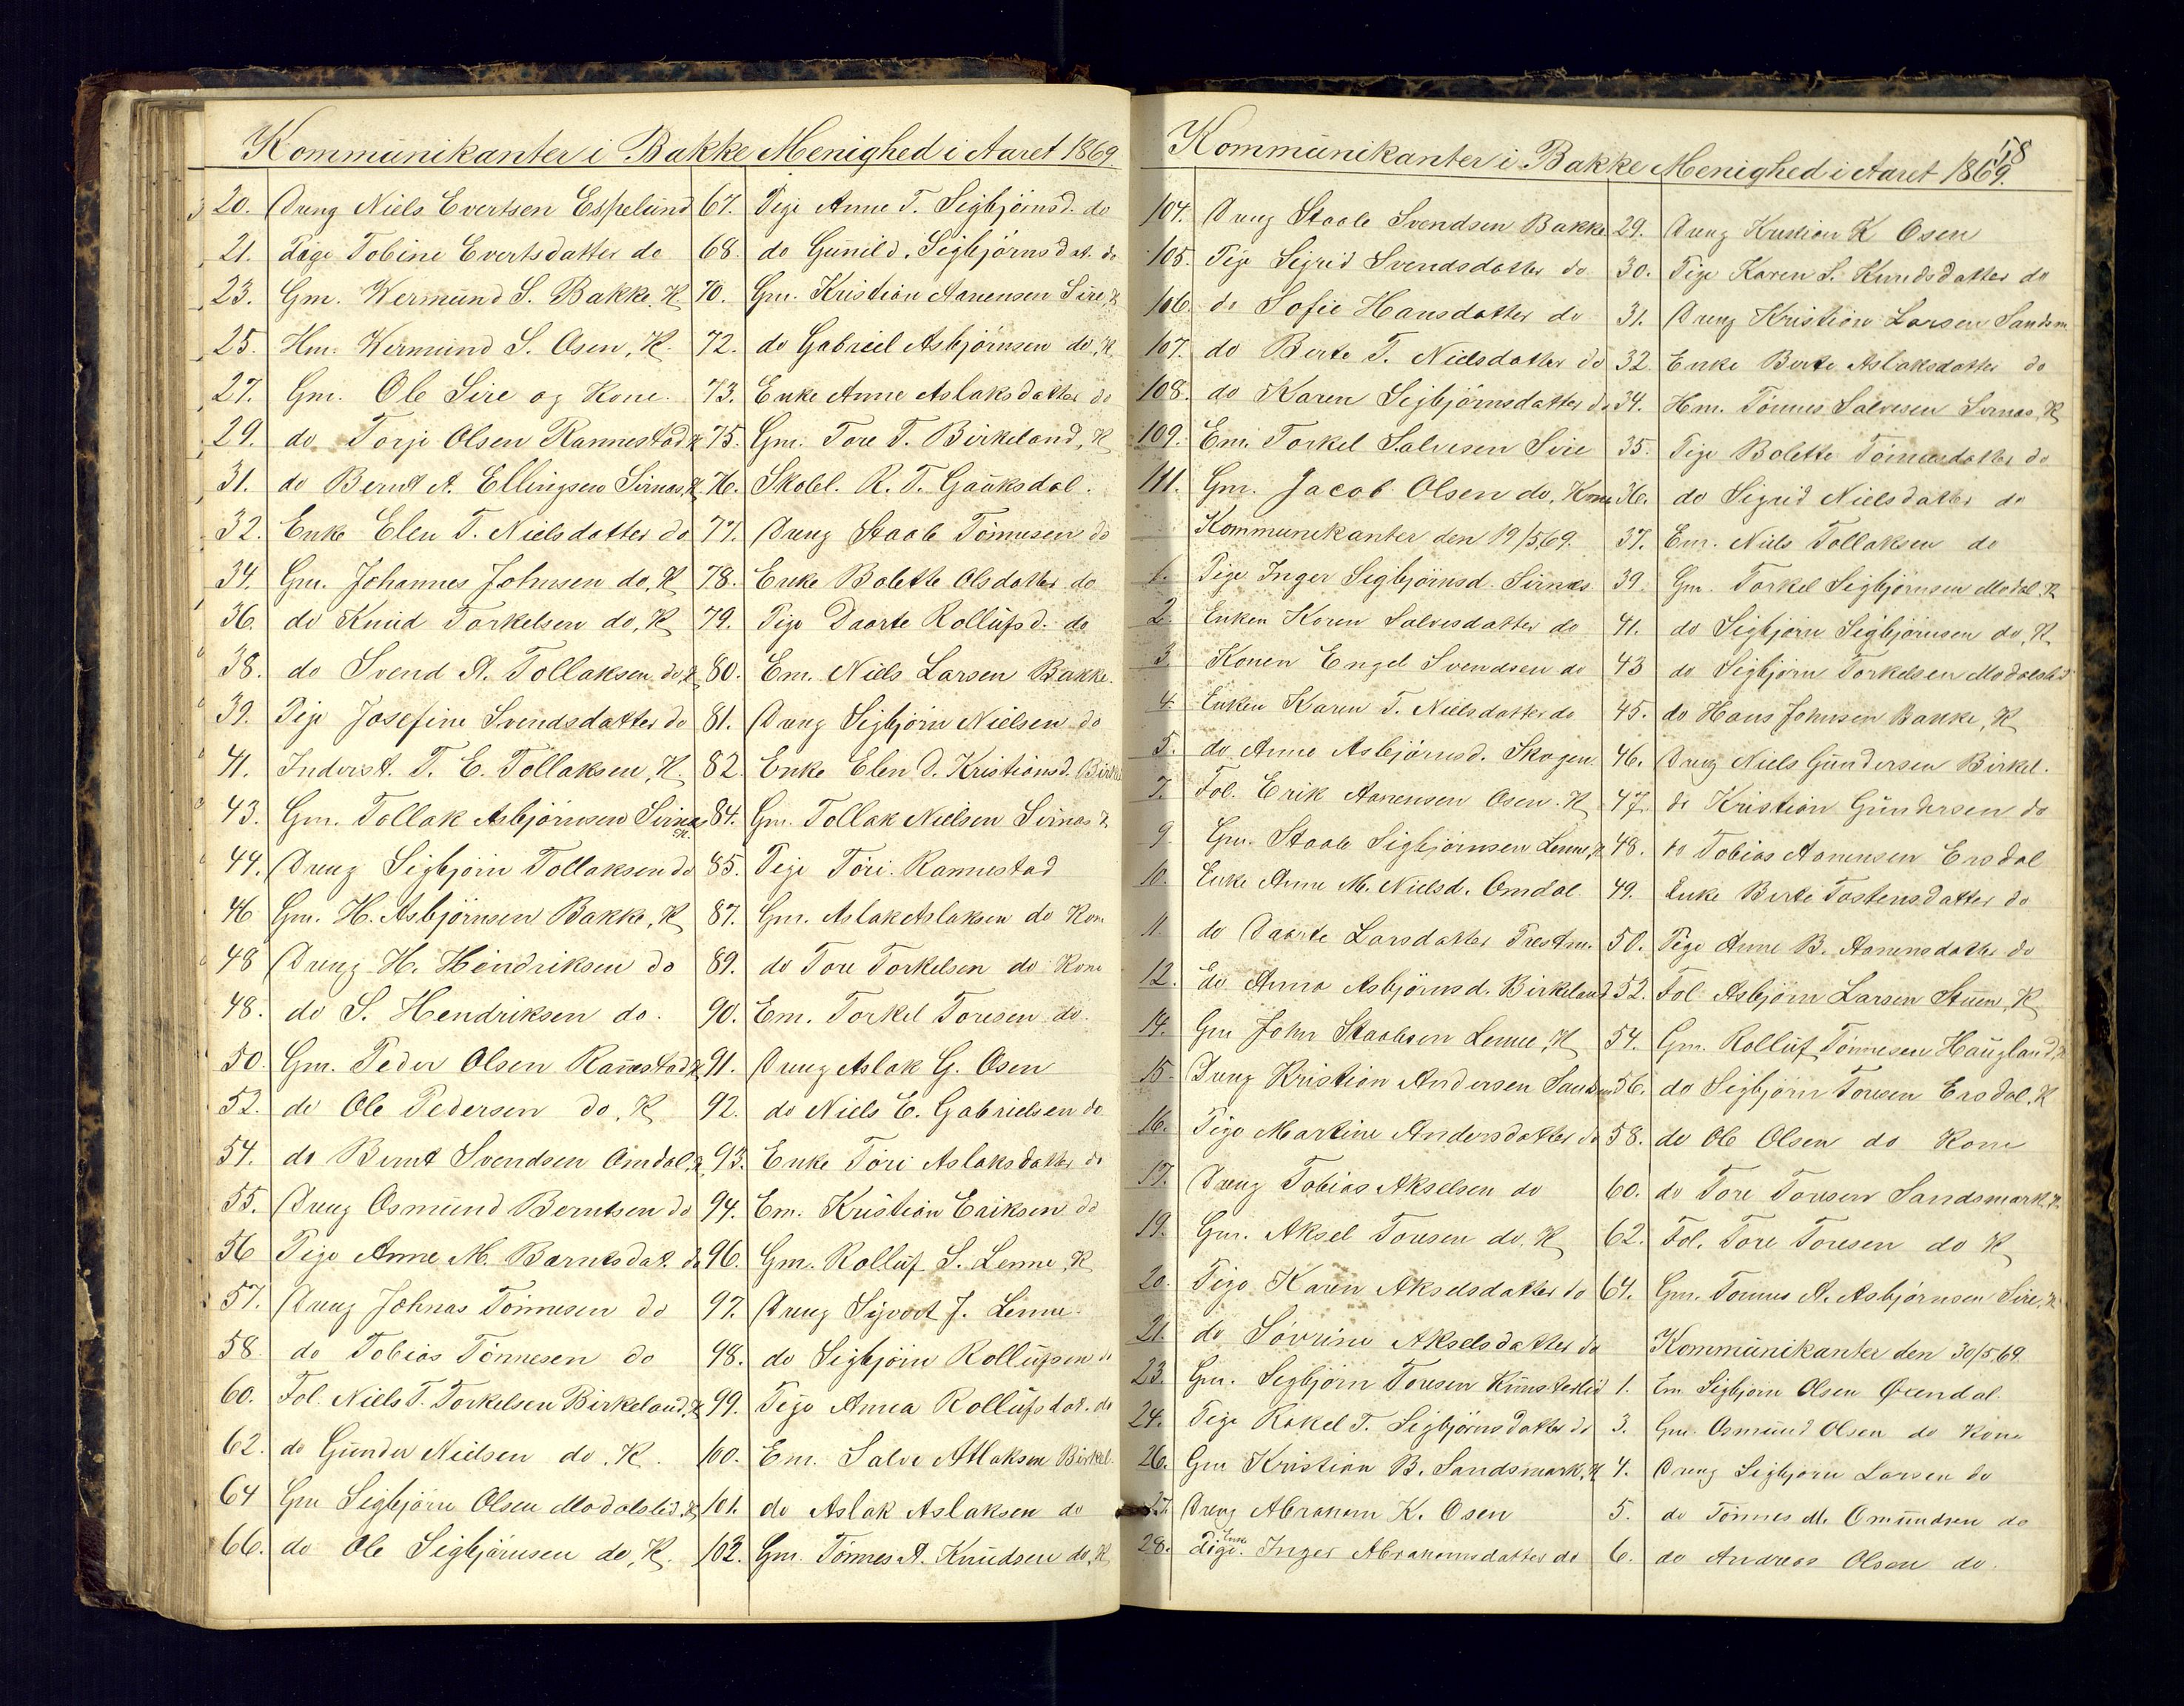 Kommunikanter i Bakke Menighed i Aaret 1869
20. Dreng Niels Evertsen Espelund
21. Pige Tobine Evertsdatter do
23. Gm. Wermund S. Bakke. K
25. Hm. Wermund S. Osen, K.
27. Gm. Ole Sire og Kone.
29. do Torje Olsen Rannestad K
31. do Bernt A. Ellingsen Sirnas, K.
32. Enke Elen T. Nielsdatter do
34. Gm. Johannes Johnsen do, K
36. do Knud Torkelsen do, K
38. do Svend A. Tollaksen do, K
39. Pige Josefine Svendsdatter do
41. Inderst. T. E. Tollaksen, K.
43. Gm. Tollak Asbjörnsen Sirnas K.
44. Dreng Sigbjörn Tollaksen do
46 Gm. H. Asbjörnsen Bakke, K
48 Dreng H. Hendriksen do
48. do S. Hendriksen do.
50. Gm. Peder Olsen Rannestad K
52. do Ole Pedersen do, K
54. do Bernt Svendsen Omdal, K
55. Dreng Osmund Berntsen do
56 Pige Anne M. Barntsdat. do
57. Dreng Johnas Tönnesen do
58. do Tobias Tönnesen do
60. Fol. Niels T. Torkelsen Birkeland, K
62. do Gunder Nielsen do. K.
64 Gm Sigbjörn Olsen Modalslid, K
66. do Ole Sigbjörnsen do, K.
67. Pige Anne T. Sigbjörnsd. do
68. do Gunild. Sigbjörnsdat. do
70. Gm. Kristian Aanensen Sire, K
72. do Gabriel Asbjörnsen do, K
73. Enke Anne Aslaksdatter do
75. Gm. Tore T. Birkeland, K
76. Skolel. R. T. Gauksdal.
77. Dreng Staale Tönnesen do
78. Enke Bolette Olsdatter do
79. Pige Daarte Rollufsd. do
80. Em. Niels Larsen Bakke.
81. Dreng Sigbjörn Nielsen do
82. Enke Elen D. Kristiansd.
84. Gm. Tollak Nielsen Sirnas K
85. Pige Töri. Rannestad
87. Gm. Aslak Aslaksen do Kone
89. do Tore Torkelsen do Kone
90. Em. Torkel Toresen do.
91. Dreng Aslak G. Osen
92. do Niels E. Gabrielsen do
93. Enke Töri Aslaksdatter do
94. Em. Kristian Eriksen do
96. Gm. Rolluf S. Lenne, K
97. Dreng Syvert J. Lenne.
98. do Sigbjörn Rollufsen do
99. Pige Anna Rollufsdat. do
100. Em. Salve Atlaksen Birkel.
101. do Aslak Aslaksen do
102. Gm. Tönnes A. Knudsen do, K
58
Kommunikanter i Bakke Menighed i Aaret 1869.
104. Dreng Staale Svendsen Bakke
105. Pige Sigrid Svendsdatter do
106. do Sofie Hansdatter do
107. do Berte T. Nielsdatter do
108. do Karen Sigbjörnsdatter do
109. Em. Torkel Salvesen Sire
111. Gm. Jacob Olsen do, Kone
Kommunikanter den 19/5,69.
1. Pige Inger Sigbjörnsd. Sirnas
2. Enken Karen Salvesdatter do
3 Konen Engel Svendsen do
4. Enken Karen T. Nielsdatter do
5. do Anne Asbjörnsd. Skogen
7. Fol. Erik Aanensen Osen. K
9. Gm. Staale Sigbjörnsen Lenne, K
10. Enke Anne M. Nielsd. Omdal
11. do Daarte Larsdatter
12. do Anna Asbjörnsd. Birkeland
14. Gm John Staalesen Lenne, K
15. Dreng Kristian Andersen
16. Pige Martine Andersdatter do
17. Dreng Tobias Akselsen do
19. Gm. Aksel Toresen do. K
20. Pige Karen Akselsdatter do
21. do Sövrine Akselsdatter do
23. Gm. Sigbjörn Toresen
24. Pige Rakel T. Sigbjörnsdatter do
26. Gm Kristian B. Sandsmark, K
27. Dreng Abraham K. Osen
28. Pige. Enke Inger Abrahamsdatter do
29. Dreng Kristian K Osen
30. Pige Karen S. Knudsdatter do
31. Dreng Kristian Larsen Sandsm.
32. Enke Berte Aslaksdatter do
34. Hm. Tönnes Salvesen Sirnas, K
35. Pige Bolette Tönnesdatter do
36. do Sigrid Nielsdatter do
37. Em. Niels Tollaksen do
39. Gm. Torkel Sigbjörnsen Modal. K
41. do Sigbjörn Sigbjörnsen do, K
43 do Sigbjörn Torkelsen Modalslid
45. do Hans Johnsen Bakke, K
46. Dreng Niels Gundersen Birkel.
47. do Kristian Gundersen do
48. do Tobias Aanensen Ersdal
49. Enke Berte Tostensdatter do
50. Pige Anne B. Aanensdatter do
52. Fol. Asbjörn Larsen Stuen, K
54. Gm. Rolluf Tönnesen Haugland, K
56. do Sigbjörn Toresen Ersdal, K
58. do Ole Olsen do Kone
60. do Tore Toresen Sandsmark, K.
62. Fol. Tore Toresen do K
64. Gm. Tönnes A. Asbjörnsen Sire, K
Kommunikanter den 30/5,69.
1. Em Sigbjörn Olsen
3. Gm. Osmund Olsen do Kone
4. Dreng Sigbjörn Larsen do
5. do Tönnes M. Omundsen do
6. do Andreas Olsen do.